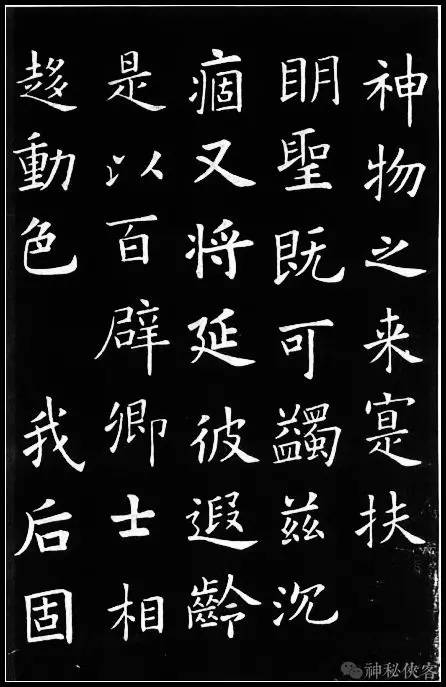 神物之来寔扶
眀聖既可蠲兹沉
痼又将延彼遐齡
是以百辟卿士相
趍動色 我后固
神秘俠客